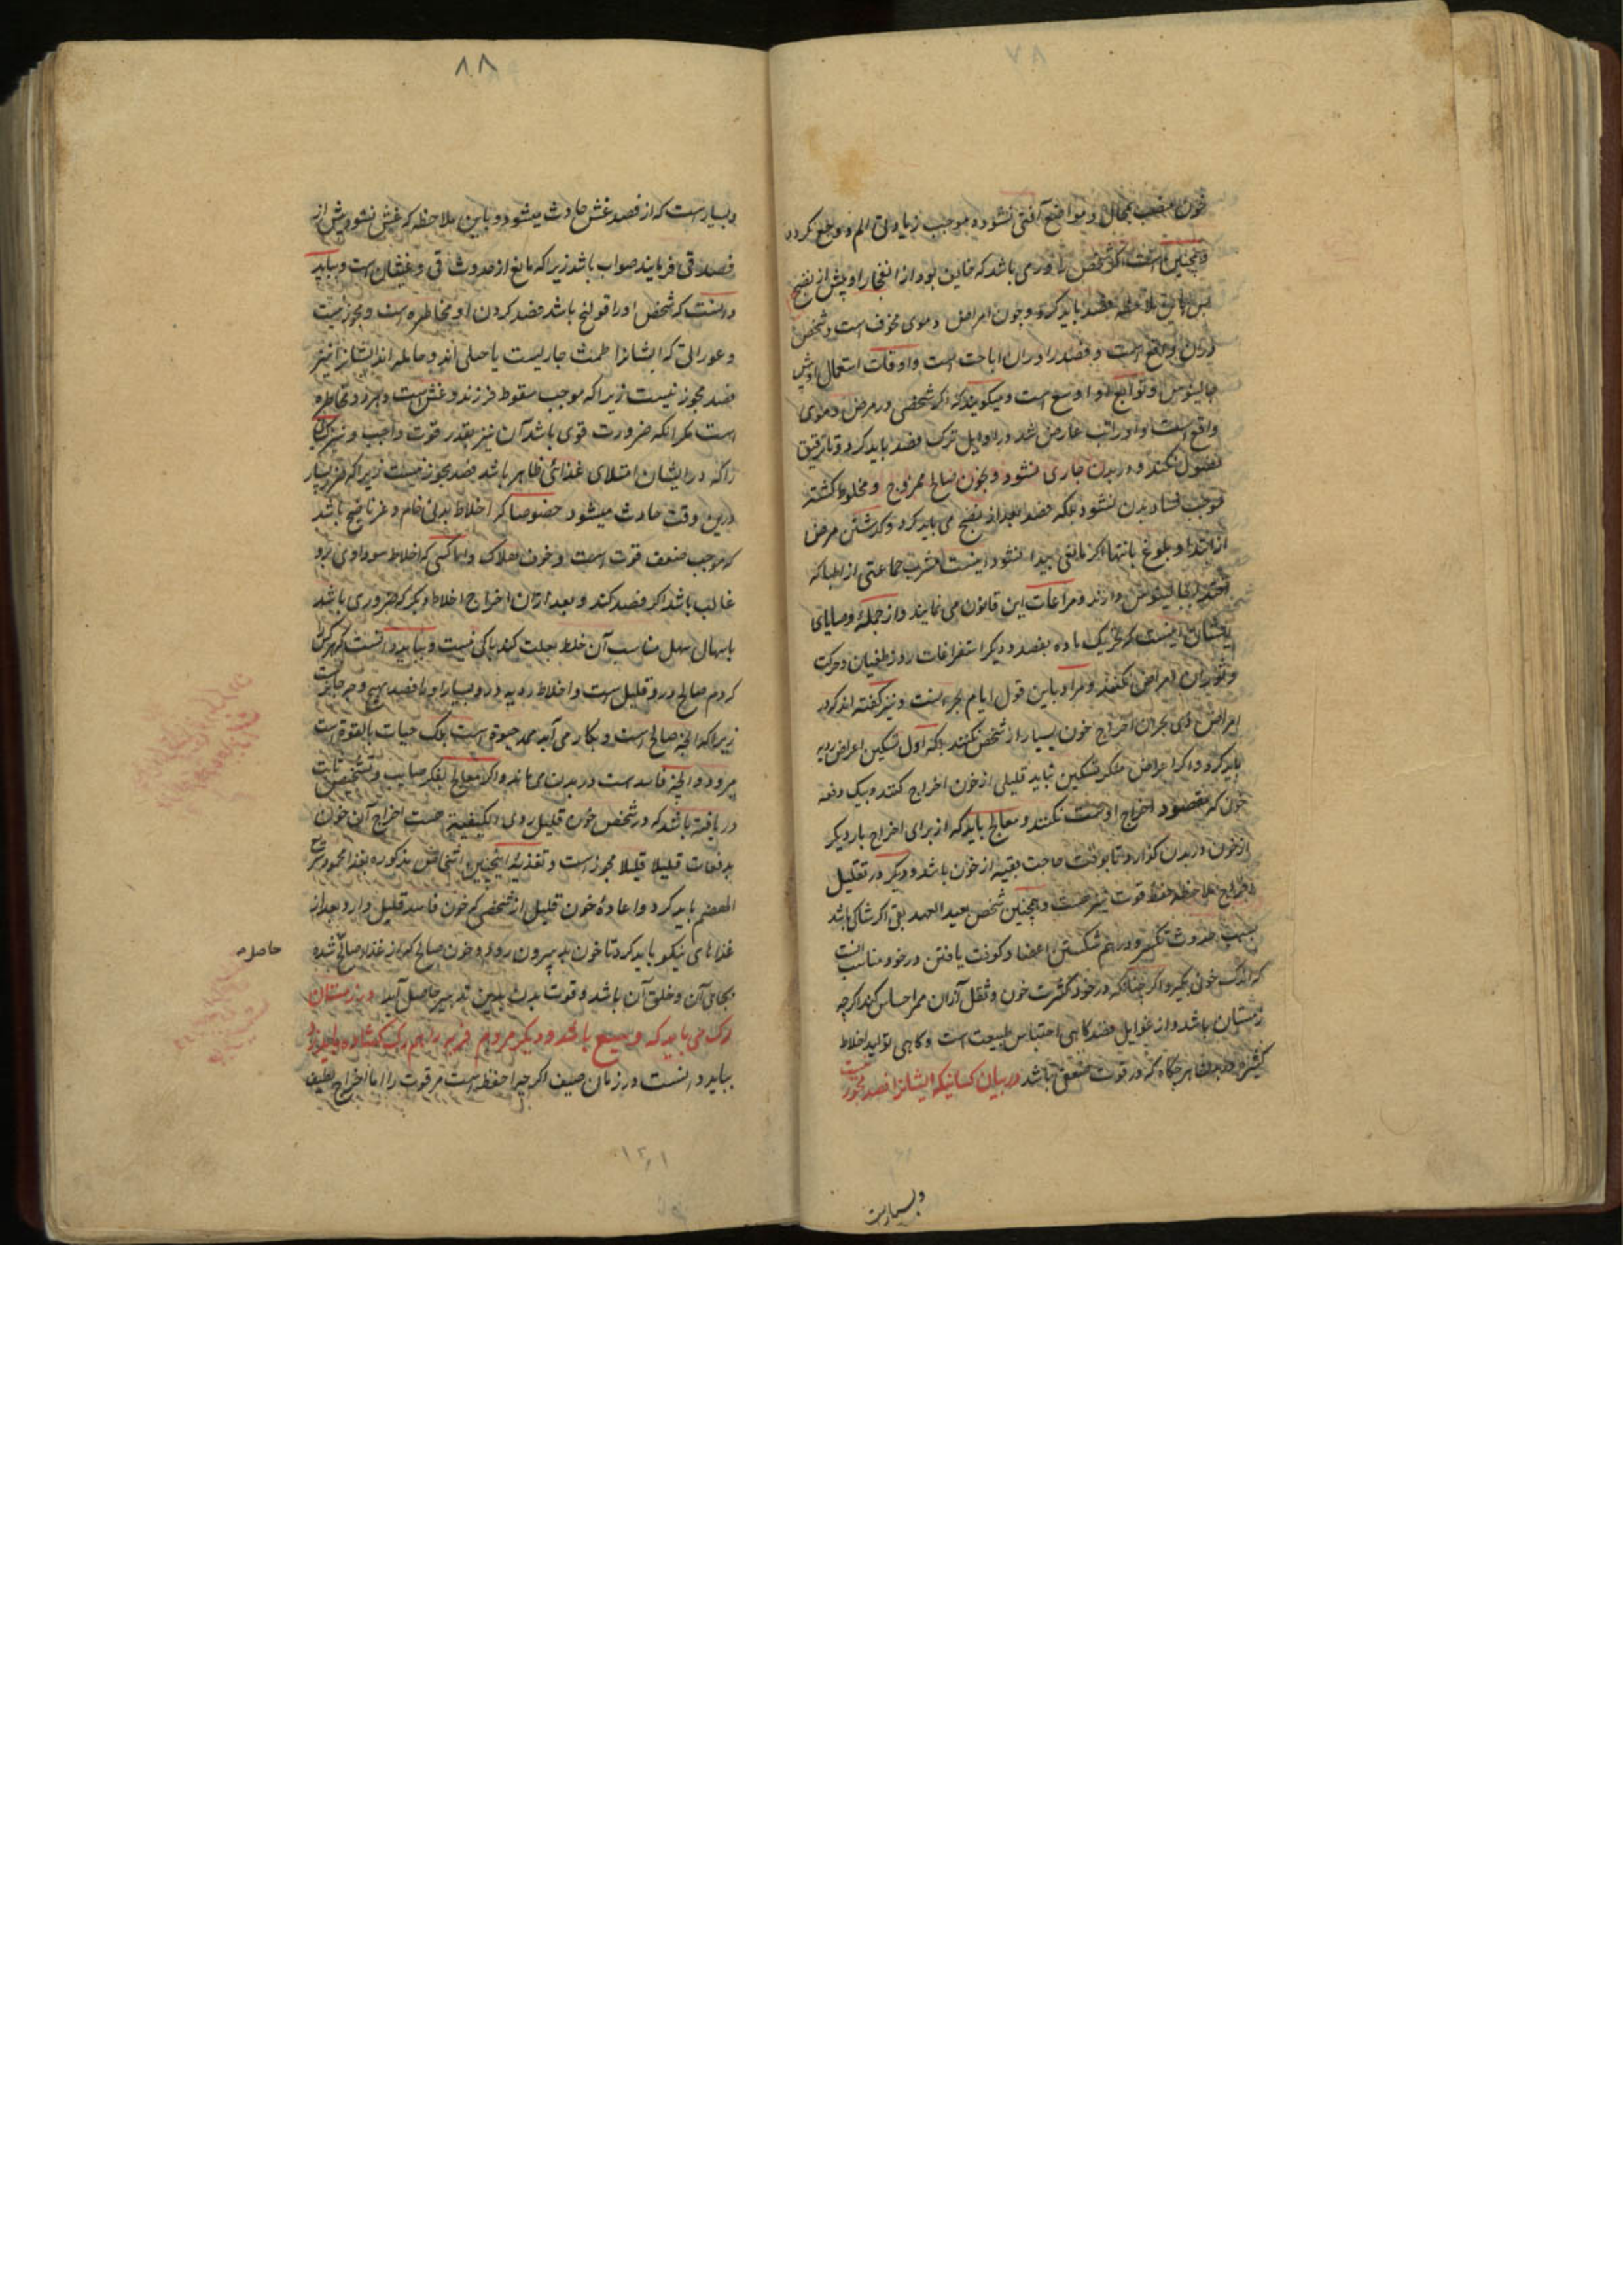 ۸۷
خون بمحال و مواضع آفتی نشود و موجب زیادتی الم و وجع نکردد
و همچنین است اکر شخص را ورمی باشد که خایف بود از انفجار او پیش از نضج
پس باین ملاحظه فصد باید کرد و چون امراض دموی مخوف است و شخص
دران واقع است و فصد را دران اباحت است و اوقات استعمال او پیش
جالینوس و توابع او اوسع است و میکویند که اکر شخصی در مرض دموی
واقع است و او را تب عارض شد در اوایل ترک فصد باید کرد و تا ترقیق
فضول نکند و در بدن جاری نشود و بخون صالح ممزوج و مخلوط کشته
موجب فساد بدن نشود بلکه فصد بعد از نضج می باید کرد و کذشتن مرض
از ابتدا و بلوغ بانتها اکر مانعی پیدا نشود اینست مشرب جماعتی از اطبا که
اقتدا بجالینوس دارند و مراعات این قانون می نمایند و از جمله وصایای
ایشان اینست که تحریک ماده بفصد و دیکر استفراغات روز طغیان و حرکت
و ثوران امراض نکنند و مراد باین قول ایام بحرانست و نیز کفته اند که در
امراض ذی بحران اخراج خون بسیار از شخص نکنند بلکه اول تسکین اعراض ردیه
باید کرد و اکر اعراض منکر تسکین نیابد قلیلی از خون اخراج کنند و بیک دفعه
خون که مقصود اخراج اوست نکنند و معالج باید که از برای اخراج بار دیکر
از خون در بدن کذارد تا بوقت حاجت بقیه از خون باشد و دیکر در تقلیل
اخراج ملاحظه حفظ قوت نیز هست و همچنین شخص بعید العهد بقی اکر شاکی باشد
بسبب حدوث تکسر و درهم شکستن اعضا و کوفت یافتن در خود مناسب آنست
که اندک خونی بکیرد اکر چنانکه در خود کثرت خون و ثقل آن احساس کند اکرچه
زمستان باشد و از غوایل فصد کاهی احتباس طبیعت است و کاهی تولید اخلاط
کثیره در بدن هرکاه که در قوت ضعفی باشد در بیان کسانیکه ایشانرا فصد مجوز نیست
و بسیارست
۸۸
و بسیارست که از فصد غش حادث میشود و باین ملاحظه که غش نشود پیش از
فصد قی فرمایند صواب باشد زیرا که مانع از حدوث قی و غشیان است و بباید
دانست که شخص او را قولنج باشد فصد کردن او مخاطره است و مجوز نیست
و عوراتی که ایشانرا طمث جاریست یا حبلی اند و حامله اند ایشانرا نیز
فصد مجوز نیست زیرا که موجب سقوط فرزند و غش است و هر دو مخاطره
است مکر انکه ضرورت قوی باشد آن نیز بقدر قوت واجب و نیز کسانی
را که در ایشان امتلای غذائی ظاهر باشد فصد مجوز نیست زیرا که ضرر بسیار
درین وقت حادث میشود خصوصا که اخلاط بدنی خام و غیر ناضج باشد
که موجب ضعف قوت است و خوف هلاک و اما کسی که اخلاط سوداوی برو
غالب باشد اکر فصد کند و بعد ازان اخراج اخلاط دیکر که ضروری باشد
باسهال مسهل مناسب آن خلط بعلت کند باکی نیست و بباید دانست که هر کس
که دم صالح درو قلیل است و اخلاط ردیه درو بسیار او را فصد بهیچ وجه جایز نیست
زیرا که آنچه صالح است و بکار می آید ممد حیوة است بلک حیات بالقوة است
میرود و آنچه فاسد است در بدن می ماند و اکر معالج بفکر صایب و تشخیص ثابت
دریافته باشد که در شخص خون قلیل ردی الکیفیة هست اخراج آن خون
بدفعات قلیلا قلیلا مجوز است و تغذیه اینچنین اشخاص مذکوره بغذا محمود سریع
الهضم باید کرد و اعاده خون قلیل از شخصی که خون فاسد قلیل دارد بعد از
غذاهای نیکو باید کرد تا خون بد بیرون رود و خون صالح که از غذا صالح شده
حاصل
بجای آن و خلف آن باشد و قوت بدن بدین تدبیر حاصل آید در زمستان
رک می باید که وسیع باشد و دیکر مردم فربه را هم رک کشاده باید زد
بباید دانست در زمان صیف اکر چه احفظ است مر قوت را اما اخراج لطیف